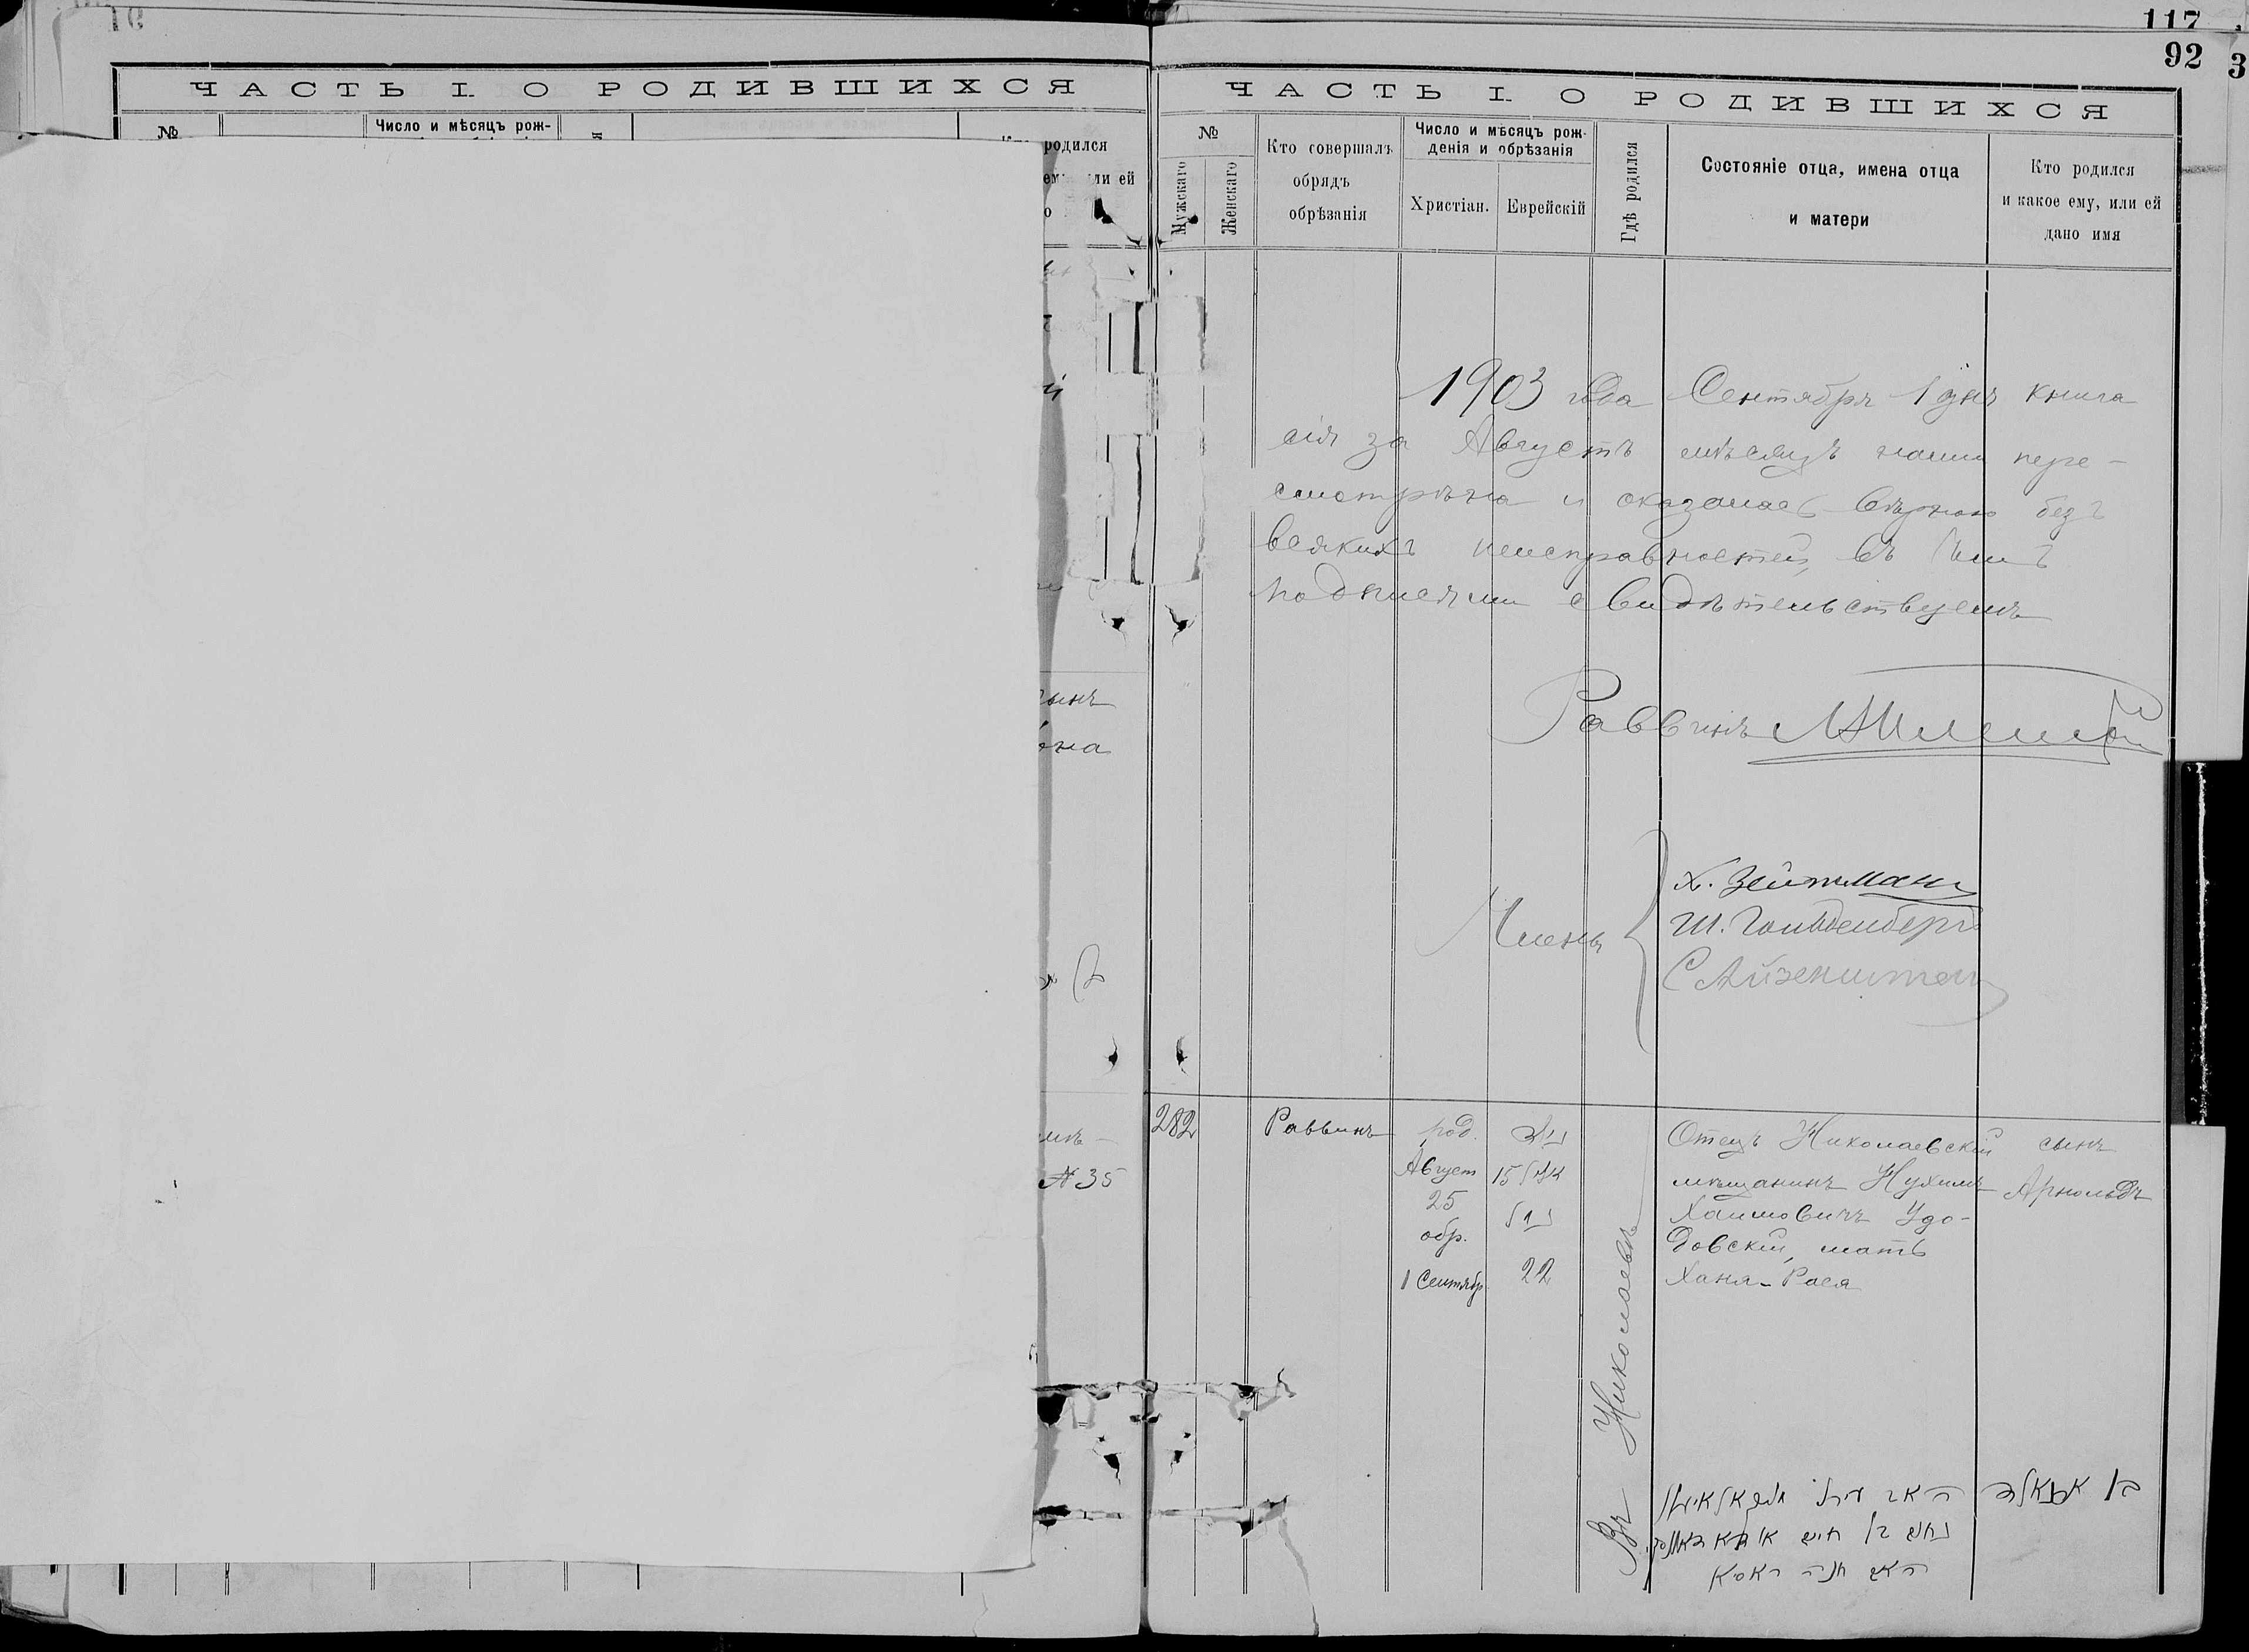 117
92
3
ЧАСТЬ I. О РОДИВШИХСЯ
№
Число и мѣсяцъ рож-
родился
ли ей
ынъ
она
N 35
ЧАСТЬ I. О РОДИВШИХСЯ
№
Мужскаго
Женскаго
Кто совершалъ
обрядъ
обрѣзанія
Число и мѣсяцъ рож-
денія и обрѣзанія
Христіан.
Еврейскій
Гдѣ родился
Состояніе отца, имена отца
и матери
Кто родился
и какое ему, или ей
дано имя
1903 года Сентября 1 дня книга
сія за Августъ мѣсяцъ нами пере-
смотрѣна и оказалась вѣрною безъ
всякихъ неисправностей, въ чемъ
подписями свидѣтельствуемъ
Раввинъ
Члены
Х. Зейтман
Ш. Гольденберг
С Айзенштеин
282
Раввинъ
род.
Август
25
обр.
1 Сентябр
נולד
15 אלול
נימול
22
Въ Николаевѣ
Отецъ Николаевскій
мѣщанинъ Нухимъ
Хаимовичъ Удо-
довскій, мать
Ханя-Рася
сынъ
Арнольдъ
האב עירוני
נחום בן חיים
האם חנה ראסיא
בן